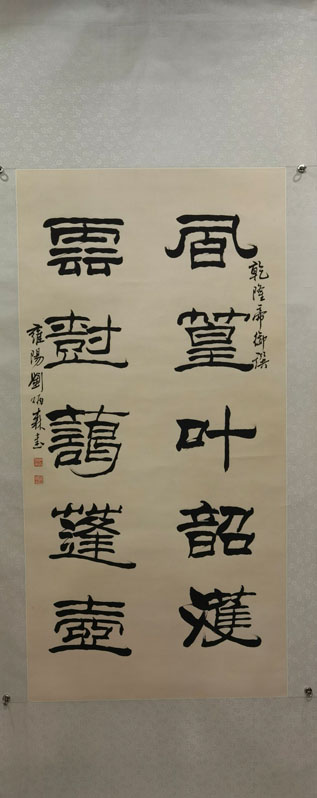 乾隆帝御撰
風篁叶韶濩
雲樹藹蓬壺
雍陽劉炳森書